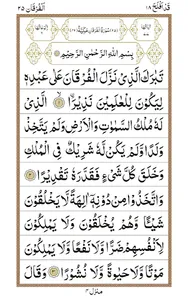 قَدْ اَفْلَحَ ١٨
اَلْفُرْقَان ٢٥
بِسْمِ اللّٰهِ الرَّحْمٰنِ الرَّحِيْمِ
تَبٰرَكَ الَّذِيْ نَزَّلَ الْفُرْقَانَ عَلٰى عَبْدِهٖ
لِيَكُوْنَ لِلْعٰلَمِيْنَ نَذِيْرًا ۙ الَّذِيْ
لَهٗ مُلْكُ السَّمٰوٰتِ وَالْاَرْضِ وَلَمْ يَتَّخِذْ
وَلَدًا وَّلَمْ يَكُنْ لَّهٗ شَرِيْكٌ فِي الْمُلْكِ
وَخَلَقَ كُلَّ شَيْءٍ فَقَدَّرَهٗ تَقْدِيْرًا
وَاتَّخَذُوْا مِنْ دُوْنِهٖٓ اٰلِهَةً لَّا يَخْلُقُوْنَ
شَيْـًٔا وَّهُمْ يُخْلَقُوْنَ وَلَا يَمْلِكُوْنَ
لِاَنْفُسِهِمْ ضَرًّا وَّلَا نَفْعًا وَّلَا يَمْلِكُوْنَ
مَوْتًا وَّلَا حَيٰوةً وَّلَا نُشُوْرًا وَقَالَ
منزل ٤